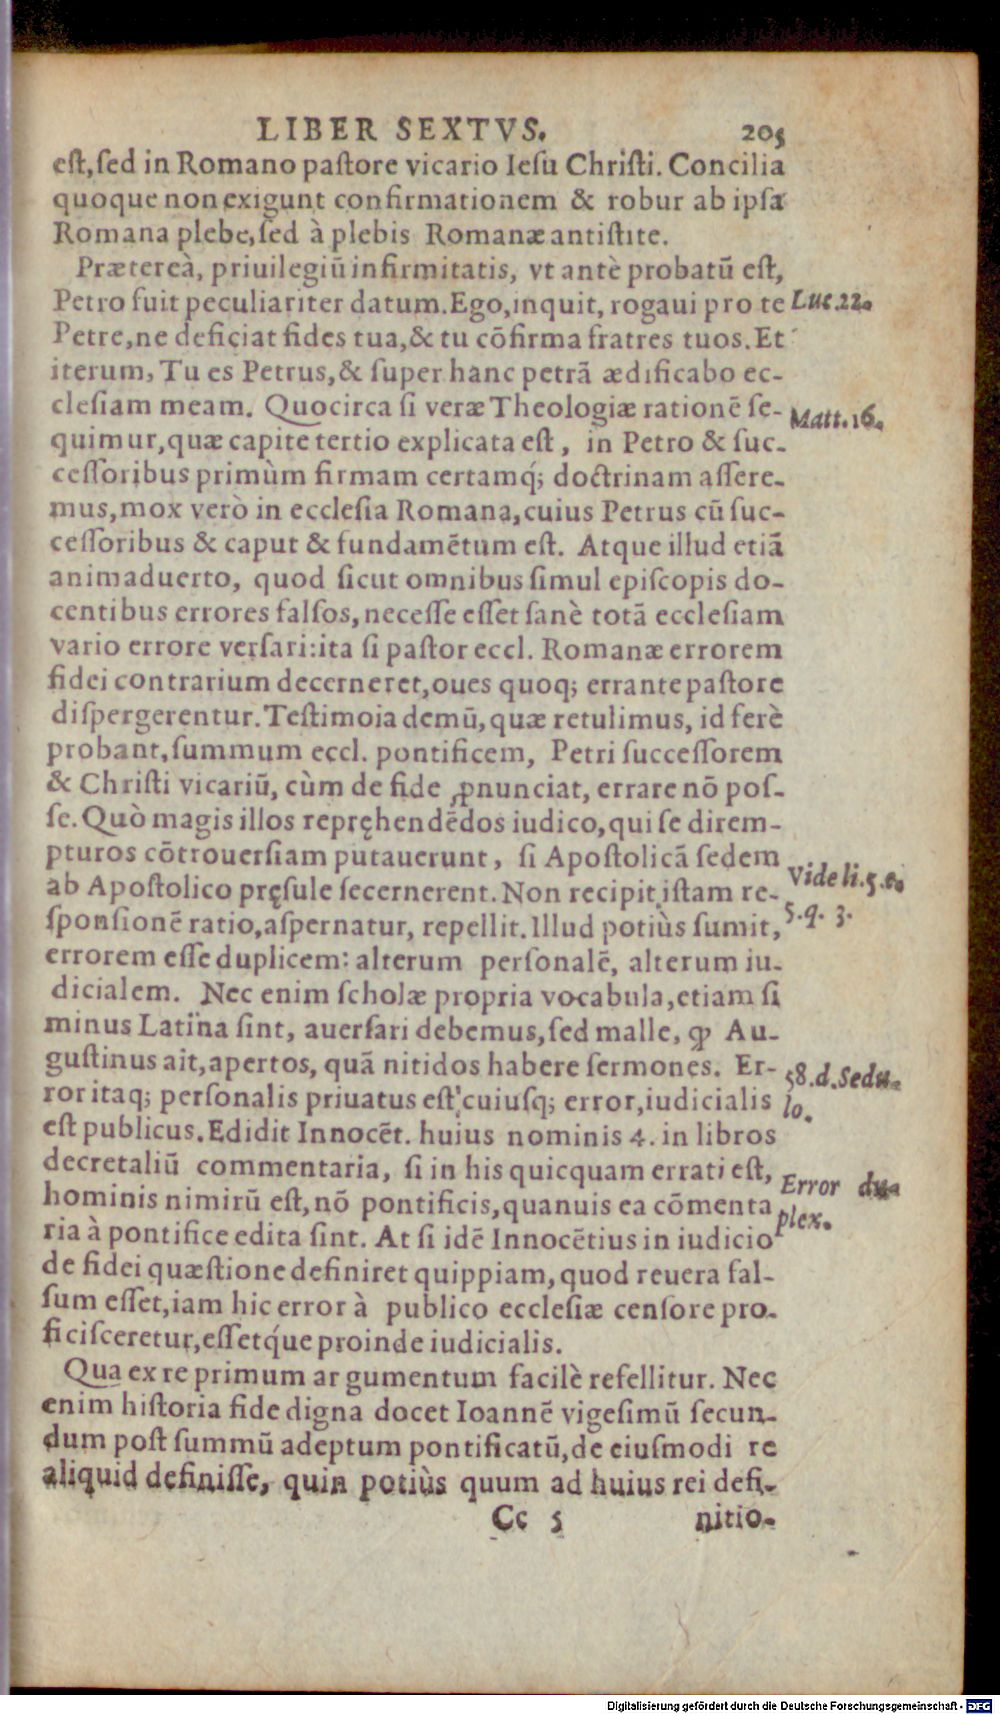 LIBER SEXTVS. 205
est, sed in Romano pastore vicario Iesu Christi. Concilia
quoque non exigunt confirmationem & robur ab ipsa
Romana plebe, sed à plebis Romanæ antistite.
Prætereà, priuilegiū infirmitatis, vt antè probatū est,
Petro fuit peculiariter datum. Ego, inquit, rogaui pro te
Luc. 22.
Petre, ne deficiat fides tua, & tu cōfirma fratres tuos. Et
iterum, Tu es Petrus, & super hanc petrā ædificabo ec-
clesiam meam. Quocirca si veræ Theologiæ rationē se-
Matt. 16.
quimur, quæ capite tertio explicata est, in Petro & suc-
cessoribus primùm firmam certamq́; doctrinam assere-
mus, mox verò in ecclesia Romana, cuius Petrus cū suc-
cessoribus & caput & fundamētum est. Atque illud etiā
animaduerto, quod sicut omnibus simul episcopis do-
centibus errores falsos, necesse esset sanè totā ecclesiam
vario errore versari: ita si pastor eccl. Romanæ errorem
fidei contrarium decerneret, oues quoq; errante pastore
dispergerentur. Testimoia demū, quæ retulimus, id ferè
probant, summum eccl. pontificem, Petri successorem
& Christi vicariū, cùm de fide ꝓnunciat, errare nō pos-
se. Quò magis illos repręhendēdos iudico, qui se direm-
pturos cōtrouersiam putauerunt, si Apostolicā sedem
Vide li. 5. e.
ab Apostolico pręsule secernerent. Non recipit istam re-
5. q. 3.
sponsionē ratio, aspernatur, repellit. Illud potiùs sumit,
errorem esse duplicem: alterum personalē, alterum iu-
dicialem. Nec enim scholæ propria vocabula, etiam si
minus Latina sint, auersari debemus, sed malle, ꝙ Au-
gustinus ait, apertos, quā nitidos habere sermones. Er-
58. d. Sedu-
ror itaq; personalis priuatus est cuiusq; error, iudicialis
lo.
est publicus. Edidit Innocēt. huius nominis 4. in libros
decretaliū commentaria, si in his quicquam errati est,
Error du-
hominis nimirū est, nō pontificis, quanuis ea cōmenta
plex.
ria à pontifice edita sint. At si idē Innocētius in iudicio
de fidei quæstione definiret quippiam, quod reuera fal-
sum esset, iam hic error à publico ecclesiæ censore pro-
ficisceretur, essetq́ue proinde iudicialis.
Qua ex re primum argumentum facilè refellitur. Nec
enim historia fide digna docet Ioannē vigesimū secun-
dum post summū adeptum pontificatū, de eiusmodi re
aliquid definisse, quin potiùs quum ad huius rei defi-
Cc 5 nitio-
Digitalisierung gefördert durch die Deutsche Forschungsgemeinschaft - DFG